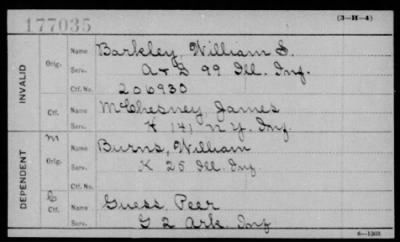 177035 (3-H-4)
INVALID
Orig. Name Barkley, William S.
Serv. A & D 99 Ill. Inf.
Ctf. No. 206930
Ctf. Name McChesney James
Serv. F 141 N.Y. Inf.
DEPENDENT
Orig. Name Burns, William
Serv. K 25 Ill. Inf
Ctf. No.
Ctf. Name Guess, Peer
Serv. G 2 Ark. Inf
6-1303